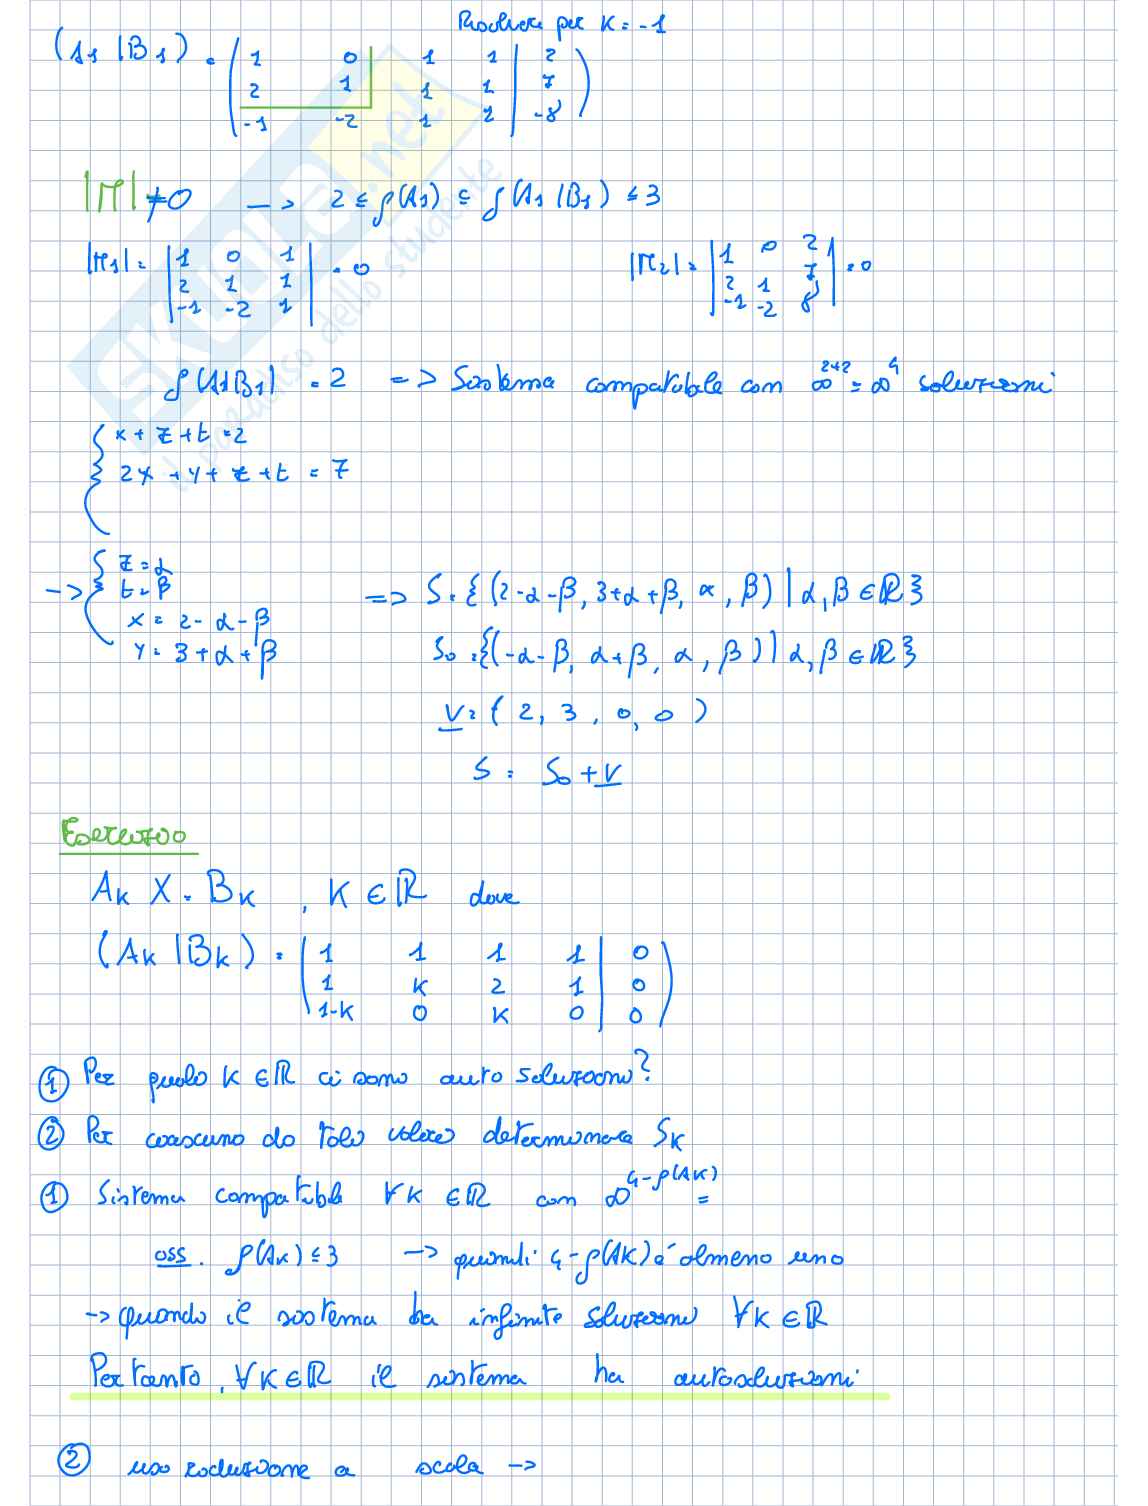 Risolvere per K = -1
(A1 | B1) = ( 1 0 1 1 | 2 )
( 2 1 1 1 | 7 )
( -1 -2 1 2 | -8 )
|M| ≠ 0 → 2 ≤ ρ(A1) ≤ ρ(A1 | B1) ≤ 3
|M1| = | 1 0 1 | = 0 |M2| = | 1 0 2 | = 0
| 2 1 1 | | 2 1 7 |
| -1 -2 1 | | -1 -2 8 |
ρ(A1|B1) = 2 => Sistema compatibile con ∞²⁺² = ∞⁴ soluzioni
{ x + z + t = 2
2x + y + z + t = 7
→ { z = α
t = β
x = 2 - α - β
y = 3 + α + β
=> S = { (2-α-β, 3+α+β, α, β) | α, β ∈ ℝ }
S₀ = {(-α-β, α+β, α, β) | α, β ∈ ℝ}
V = ( 2, 3, 0, 0 )
S = S₀ + V
Esercizio
AK X = BK , K ∈ ℝ dove
(AK | BK) = ( 1 1 1 1 | 0 )
( 1 K 2 1 | 0 )
( 1-K 0 K 0 | 0 )
① Per quale K ∈ ℝ ci sono auto soluzioni?
② Per ciascuno di tali valori determinare SK
① Sistema compatibile ∀K ∈ ℝ con ∞^(4-ρ(AK)) =
oss. ρ(AK) ≤ 3 → quindi 4-ρ(AK) è almeno uno
→ quando il sistema ha infinite soluzioni ∀K ∈ ℝ
Pertanto, ∀K ∈ ℝ il sistema ha autosoluzioni
② uso riduzione a scala →
SKUOLA.net
il paradiso dello studente